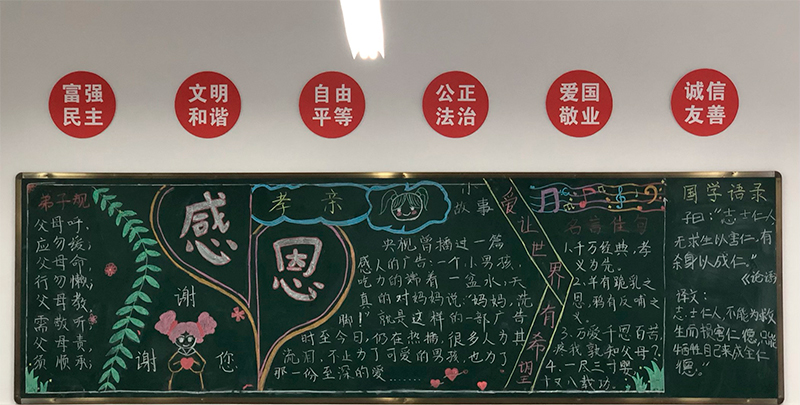 富强
民主
文明
和谐
自由
平等
公正
法治
爱国
敬业
诚信
友善
弟子规
父母呼,
应勿缓;
父母命,
行勿懒;
父母教,
需敬听;
父母责,
须顺承;
感
恩
谢
谢 您
孝亲
小
故事
央视曾播过一篇
感人的广告:一个小男孩,
吃力的端着一盆水,天
真的对妈妈说:"妈妈,洗
脚!"就是这样的一部广告
时至今日,仍在热播,很多人为其
流泪,不止为了可爱的男孩,也为了
那一份至深的爱......
爱让世界有希望
名言佳句
1.千万经典,孝
义为先。
2.羊有跪乳之
恩,鸦有反哺之
义。
3.万爱千恩百苦,
疼我孰知父母?
4.一尺三寸婴,
十又八载功。
国学语录
子曰:"志士仁人
无求生以害仁,有
杀身以成仁。"
《论语》
译文:
志士仁人,不能为救
生而损害仁德,只能
牺牲自己来成全仁
德。"